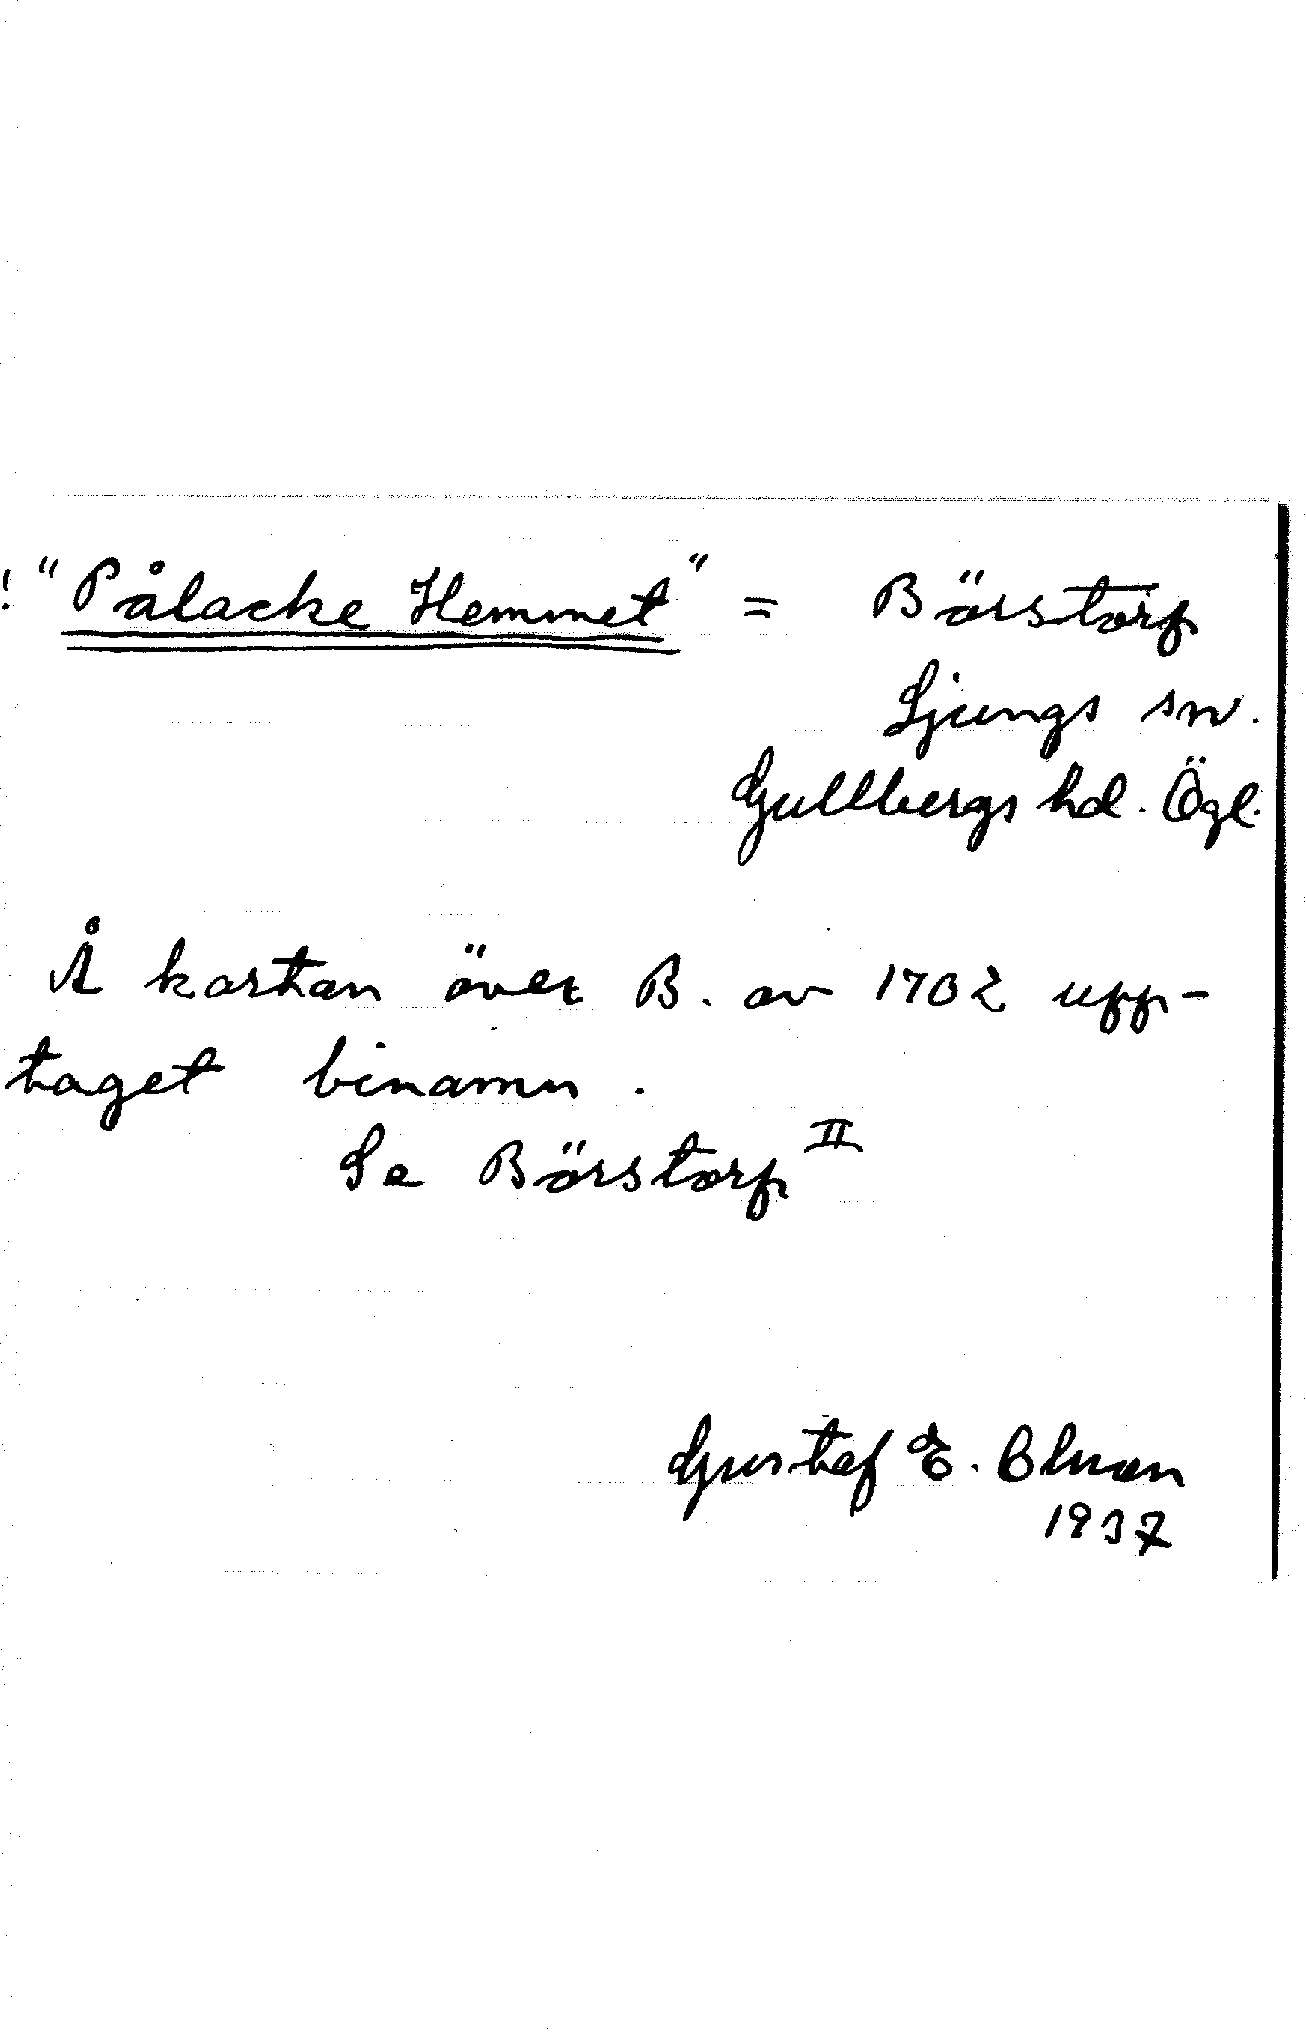 ! "Pålacke Hemmet" = Börstorp
Ljungs sn.
Gullbergs hd. Ögl.
Å kartan över B. av 1702 upp-
taget binamn.
Se Börstorp II
Gustaf E.
1937